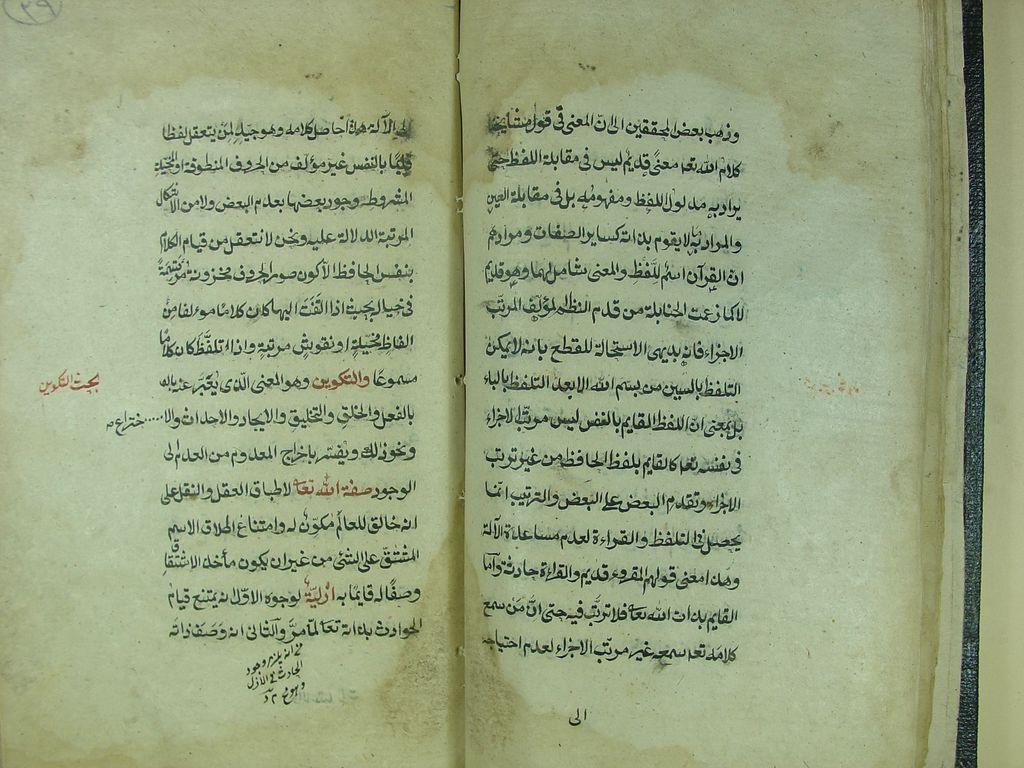 وذهب بعض المحققين الى ان المعنى في قول مشايخنا
كلام الله تعه معنًى قديم ليس في مقابلة اللفظ حتى
يراد به مدلول اللفظ ومفهومه بل في مقابلة العين
والمراد به ما لا يقوم بذاته كساير الصفات ومرادهم
ان القرآن اسم للّفظ والمعنى شامل لهما وهو قديم
لا كما زعمت الحنابلة من قدم النظم المؤلف المرتّب
الاجزاء فانه بديهى الاستحالة للقطع بانه لا يمكن
التلفظ بالسين من بسم الله الا بعد التلفظ بالباء
بل بمعنى انّ اللفظ القايم بالنفس ليس مرتّب الاجزاء
في نفسه تعه كالقايم بلفظ الحافظ من غير ترتب
الاجزاء وتقدم البعض على البعض والترتيب انّما
يحصل في التلفظ والقراءة لعدم مساعدة الآلة
وهذا معنى قولهم المقروء قديم والقراءة حادثة وأما
القايم بذات الله تعا فلا ترتّب فيه حتى انّ من سمع
كلامه تعه سمعه غير مرتّب الاجزاء لعدم احتياجه
الى
٣٩
الى الآلة هذا حاصل كلامه وهو جيد لمن يتعقل لفظا
قايمًا بالنفس غير مؤلف من الحروف المنطوقة او المخيلة
المشروطة وجود بعضها بعدم البعض ولا من الاشكال
المرتبة الدلالة عليه ونحن لا نتعقل من قيام الكلام
بنفس الحافظ الا كون صور الحروف مخزونة مرتسمةً
في خياله بحيث اذا التفت اليها كان كلامًا مؤلفا من
الفاظ مخيلة او نقوش مرتبة واذا تلفّظ كان كلامًا
مسموعًا والتكوين وهو المعنى الذى يعبّر عنه
بحث التكوين
بالفعل والخلق والتخليق والايجاد والاحداث والا.....ختراع
ونحو ذلك ويفسّر باخراج المعدوم من العدم الى
الوجود صفة الله تعا لاطباق العقل والنقل على
انه خالق للعالم مكوّن له وامتناع اطلاق الاسم
المشتق على الشئ من غير ان يكون مأخذ الاشتقاق
وصفًا له قايمًا به ازليّة لوجوه الاوّل انه يمتنع قيام
الحوادث بذاته تعا لما مرّ والثانى انه وَصَفَ ذاته
وجود
الحادث في الأزل